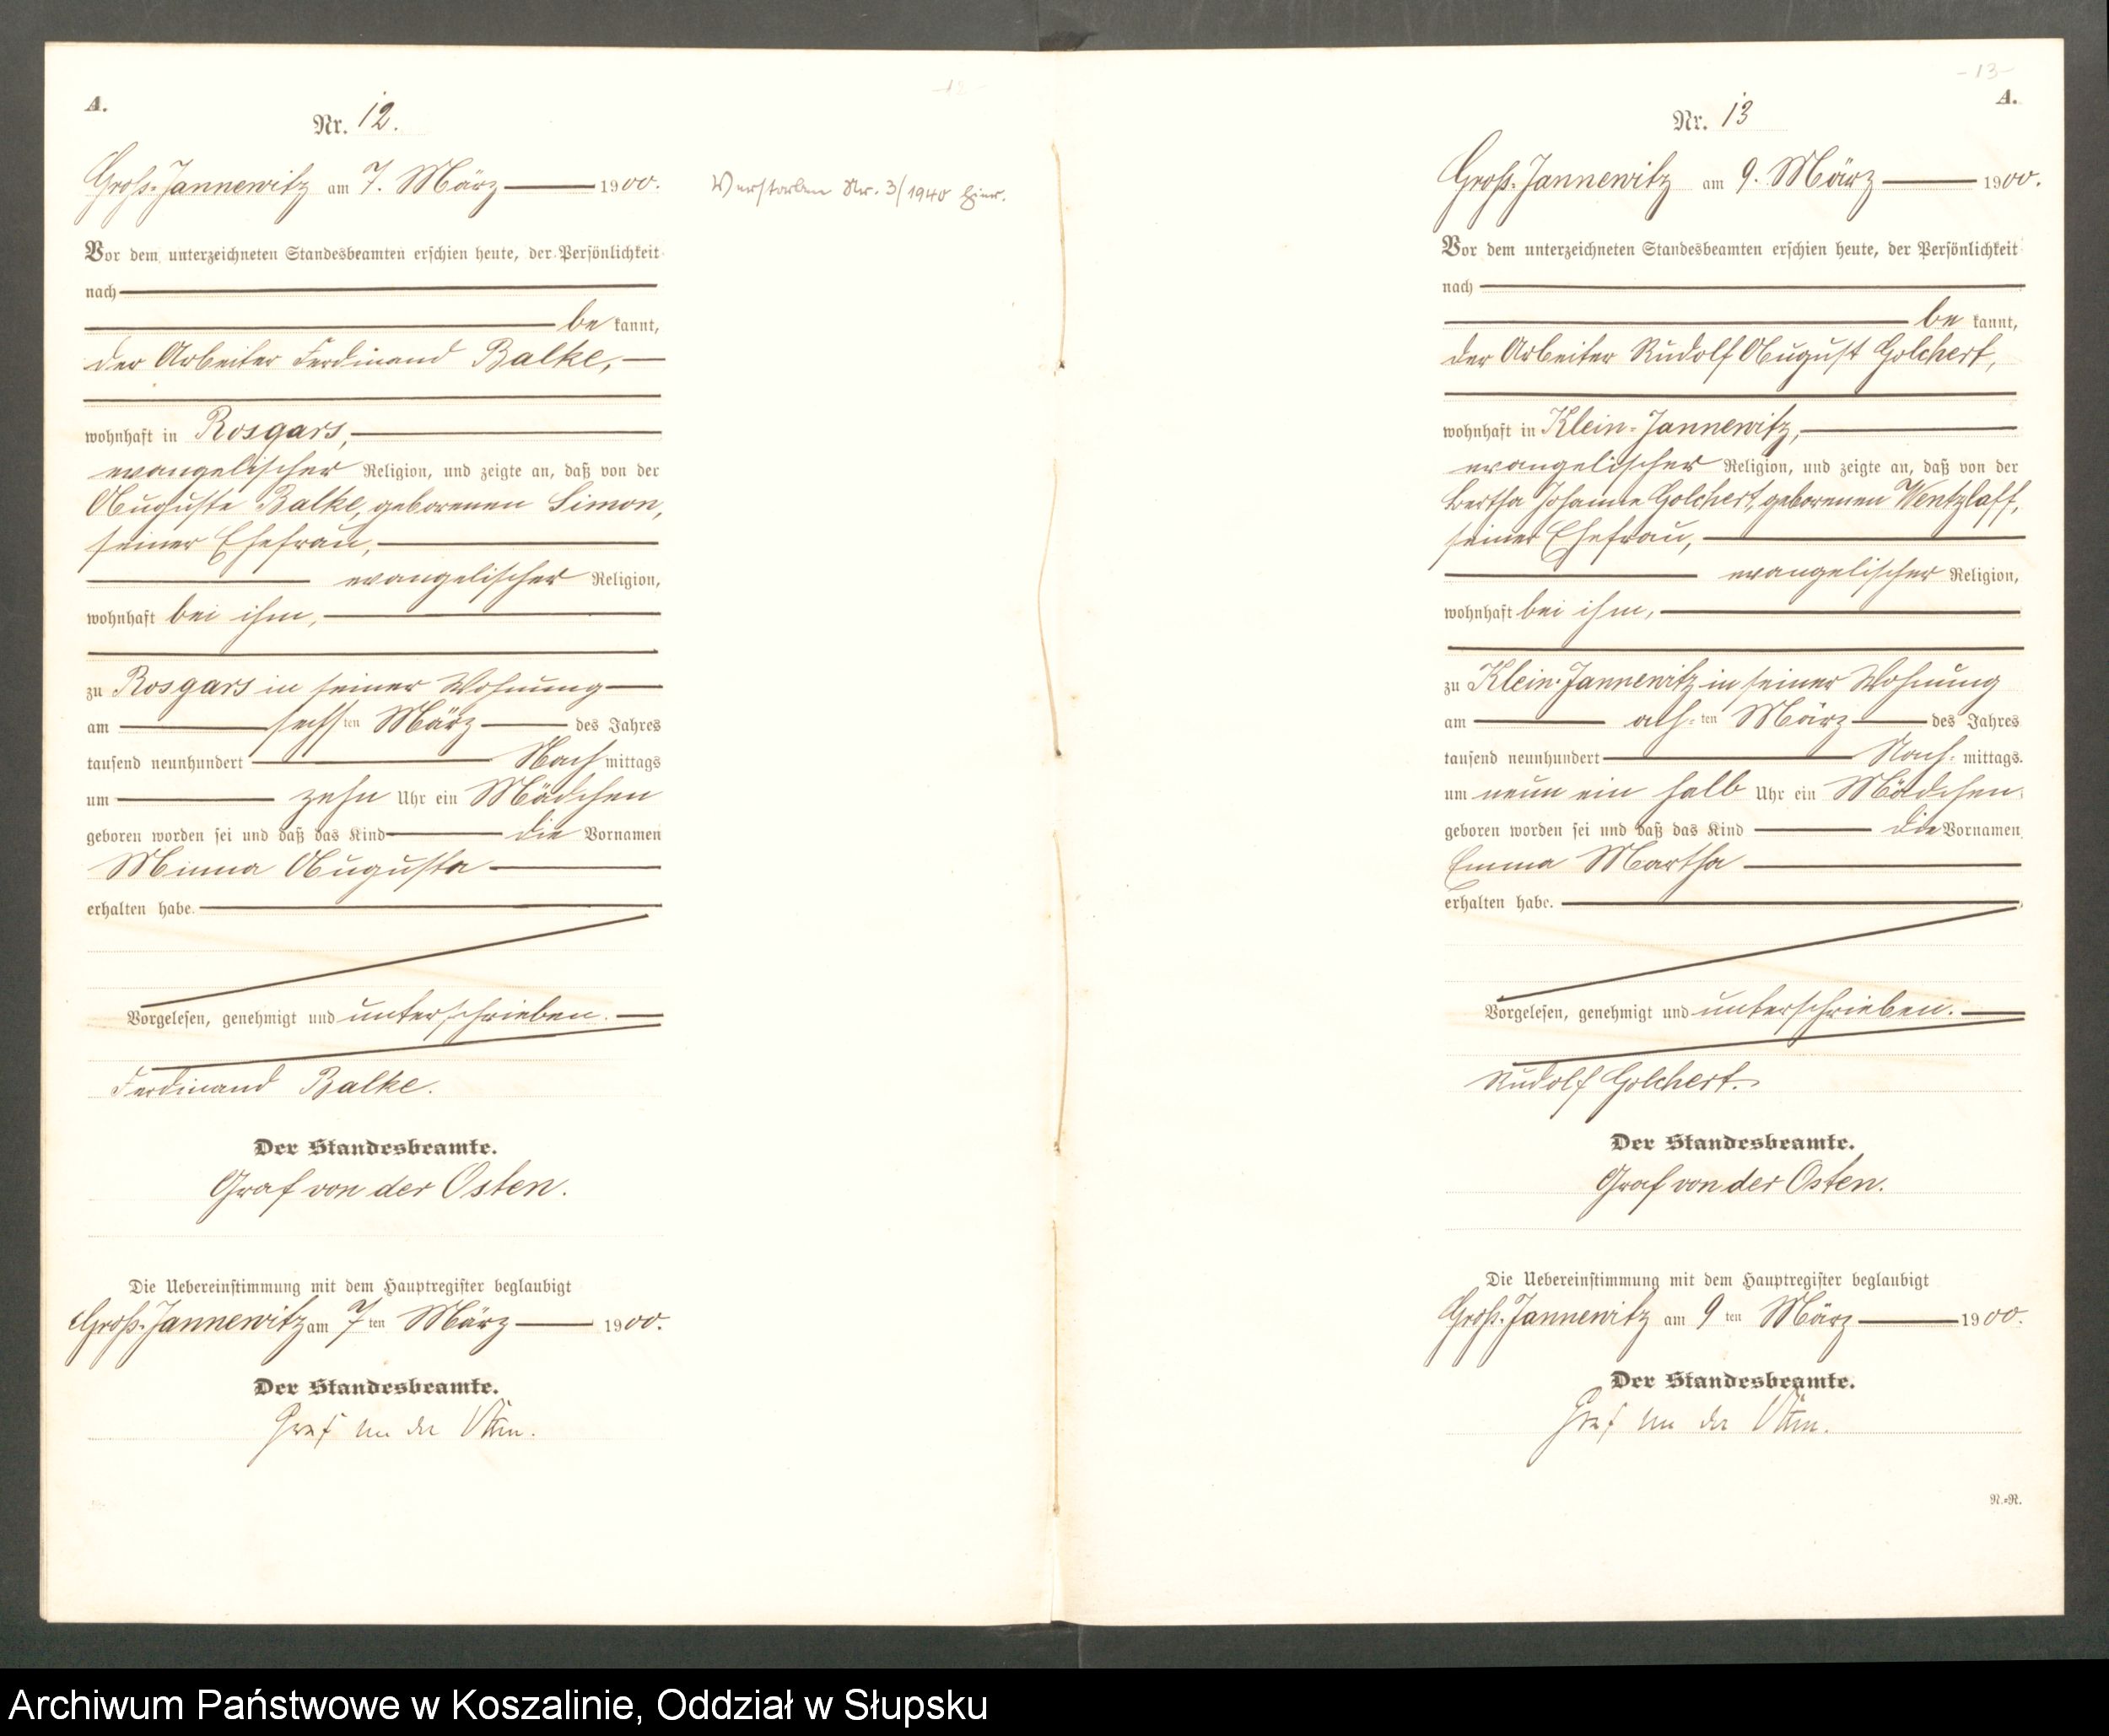 -12-
A.
Nr. 12.
Groß-Jannewitz am 7. März 1900.
Verstorben Nr. 3/1940 hier.
Vor dem unterzeichneten Standesbeamten erschien heute, der Persönlichkeit
nach
be kannt,
der Arbeiter Ferdinand Balke,
wohnhaft in Rosgars,
evangelischer Religion, und zeigte an, daß von der
Auguste Balke, geborenen Simon,
seiner Ehefrau,
evangelischer Religion,
wohnhaft bei ihm,
zu Rosgars in seiner Wohnung
am sechsten März des Jahres
tausend neunhundert Nach mittags
um zehn Uhr ein Mädchen
geboren worden sei und daß das Kind die Vornamen
Minna Augusta
erhalten habe.
Vorgelesen, genehmigt und unterschrieben.
Ferdinand Balke.
Der Standesbeamte.
Graf von der Osten.
Die Uebereinstimmung mit dem Hauptregister beglaubigt
Groß-Jannewitz am 7ten März 1900.
Der Standesbeamte.
Graf von der Osten.
-13-
A.
Nr. 13
Groß-Jannewitz am 9. März 1900.
Vor dem unterzeichneten Standesbeamten erschien heute, der Persönlichkeit
nach
be kannt,
der Arbeiter Rudolf August Golchert,
wohnhaft in Klein-Jannewitz,
evangelischer Religion, und zeigte an, daß von der
Bertha Johanne Golchert, geborenen Wentzlaff,
seiner Ehefrau,
evangelischer Religion,
wohnhaft bei ihm,
zu Klein-Jannewitz in seiner Wohnung
am ach-ten März des Jahres
tausend neunhundert Nach- mittags
um neun ein halb Uhr ein Mädchen
geboren worden sei und daß das Kind die Vornamen
Emma Martha
erhalten habe.
Vorgelesen, genehmigt und unterschrieben.
Rudolf Golchert.
Der Standesbeamte.
Graf von der Osten.
Die Uebereinstimmung mit dem Hauptregister beglaubigt
Groß-Jannewitz am 9ten März 1900.
Der Standesbeamte.
Graf von der Osten.
N.-R.
Archiwum Państwowe w Koszalinie, Oddział w Słupsku